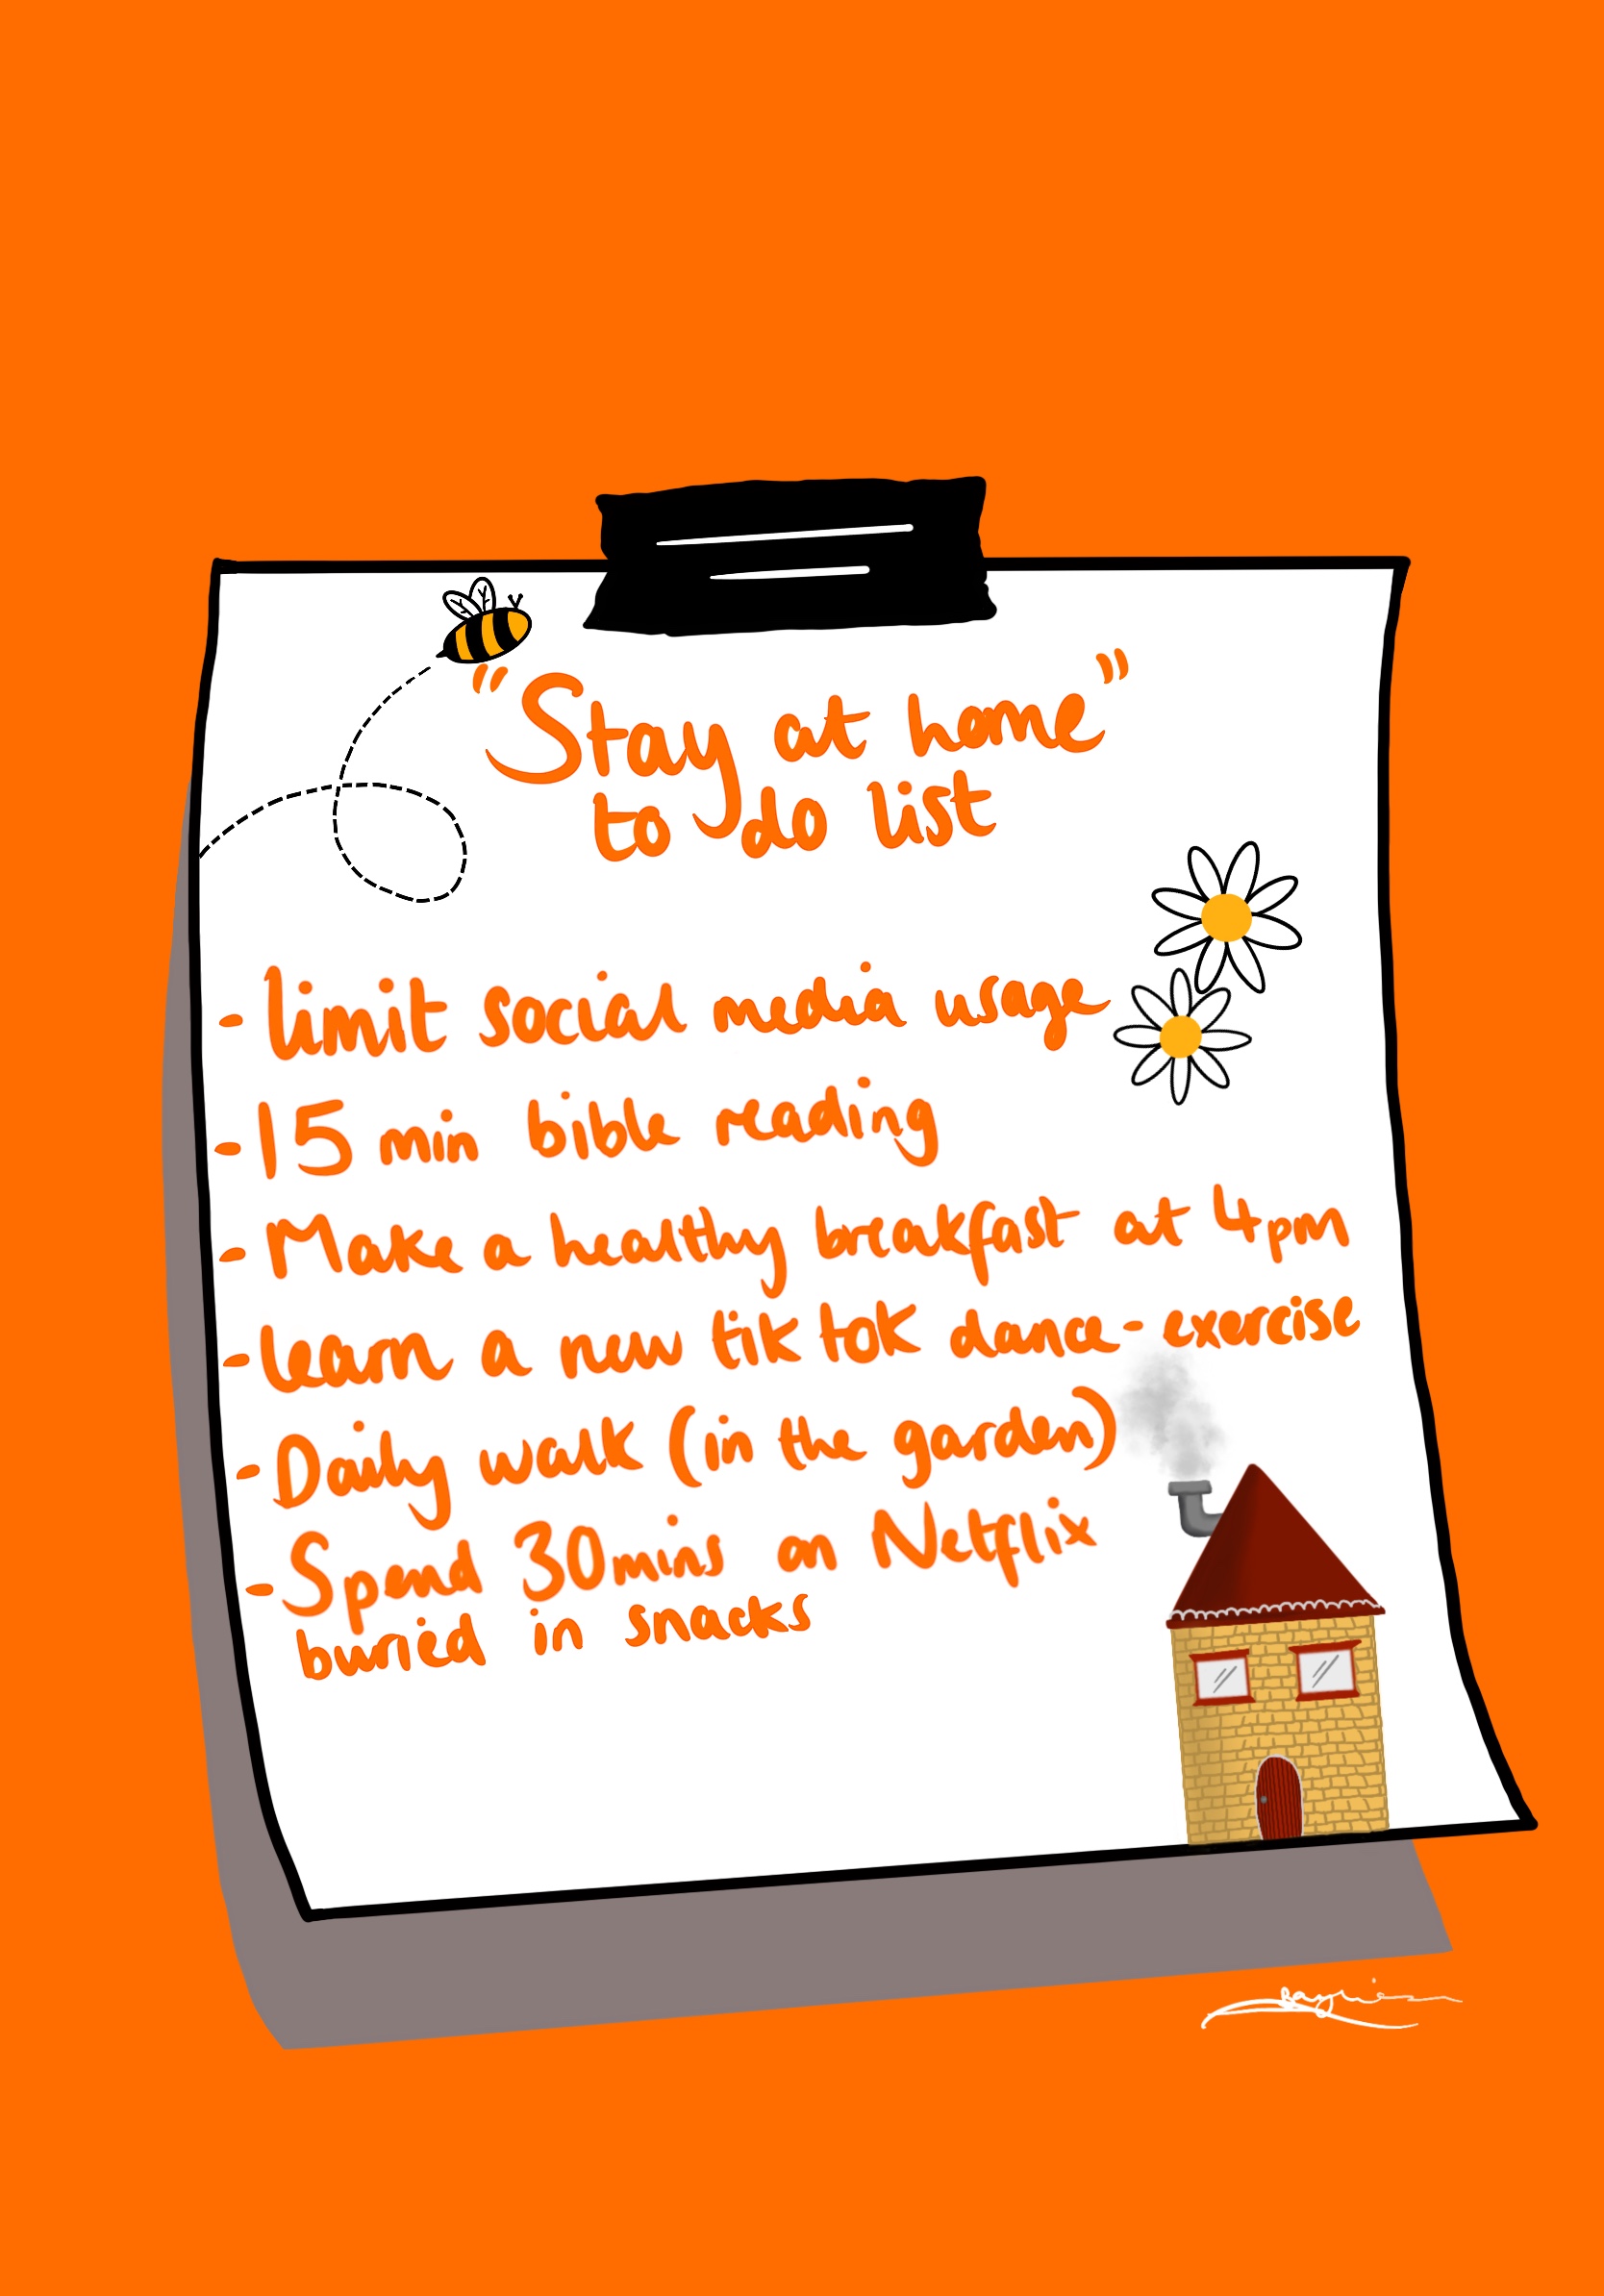 "Stay at home"
to do list
- limit social media usage
- 15 min bible reading
- Make a healthy breakfast at 4pm
- learn a new tik tok dance - exercise
- Daily walk (in the garden)
- Spend 30mins on Netflix
buried in snacks